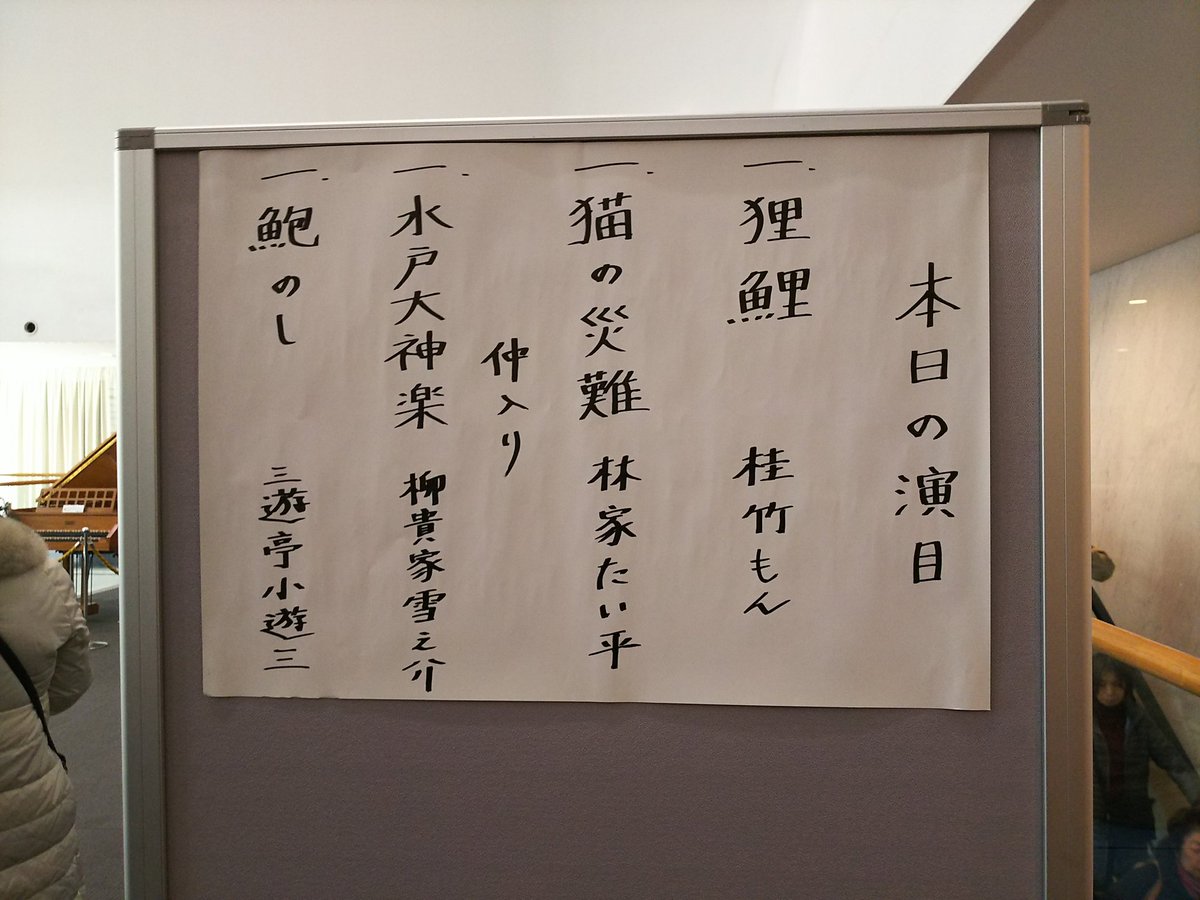 本日の演目
一. 狸鯉 桂竹もん
一. 猫の災難 林家たい平
仲入り
一. 水戸大神楽 柳貴家雪之介
一. 鮑のし 三遊亭小遊三